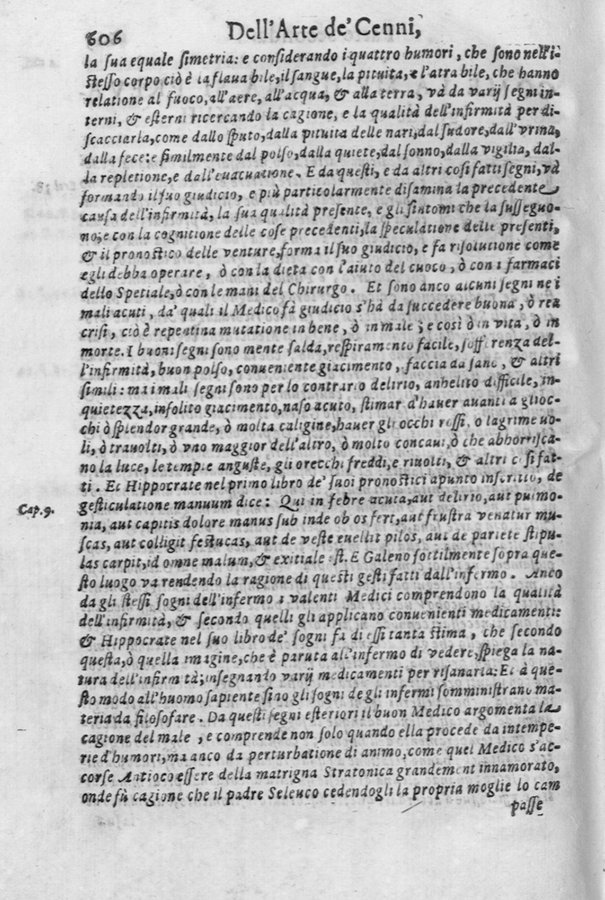 606 Dell'Arte de' Cenni,
la sua equale simetria: e considerando i quattro humori, che sono nell'i-
stesso corpo ciò è la flaua bile, il sangue, la pituita, e l'atra bile, che hanno
relatione al fuoco, all'aere, all'acqua, & alla terra, và da varij segni in-
terni, & esterni ricercando la cagione, e la qualità dell'infirmità per di-
scacciarla, come dallo sputo, dalla pituita delle nari, dal sudore, dall'vrina,
dalla fece: e similmente dal polso, dalla quiete, dal sonno, dalla vigilia, dal-
la repletione, e dall'euacuatione. E da questi, e da altri così fatti segni, và
formando il suo giudicio, e più particolarmente disamina la precedente
causa dell'infirmità, la sua qualità presente, e gli sintomi che la susseguo-
no; e con la cognitione delle cose precedenti, la speculatione delle presenti,
& il pronostico delle venture, forma il suo giudicio, e fa risolutione come
egli debba operare, ò con la dieta con l'aiuto del cuoco, ò con i farmaci
dello Spetiale, ò con le mani del Chirurgo. Et sono anco alcuni segni ne i
mali acuti, da' quali il Medico fà giudicio s'hà da succedere buona, ò rea
crisi, ciò è repentina mutatione in bene, ò in male; e così ò in vita, ò in
morte. I buoni segni sono mente salda, respiramento facile, sofferenza del-
l'infirmità, buon polso, conueniente giacimento, faccia da sano, & altri
simili: ma i mali segni sono per lo contrario delirio, anhelito difficile, in-
quietezza, insolito giacimento, naso acuto, stimar d'hauer auanti a gli oc-
chi ò splendor grande, ò molta caligine, hauer gli occhi rossi, o lagrime uo-
li, ò trauolti, ò vno maggior dell'altro, ò molto concaui, ò che abhorrisca-
no la luce, le tempie anguste, gli orecchi freddi, e riuolti, & altri così fat-
ti. Et Hippocrate nel primo libro de' suoi pronostici apunto inscritto, de
Cap. 9. gesticulatione manuum dice: Qui in febre acuta, aut delirio, aut pulmo-
nia, aut capitis dolore manus sub inde ob os fert, aut frustra venatur mu-
scas, aut colligit festucas, aut de veste euellit pilos, aut de pariete stipu-
las carpit, id omne malum, & exitiale est. E Galeno sottilmente sopra que-
sto luogo va rendendo la ragione di questi gesti fatti dall'infermo. Anco
da gli stessi sogni dell'infermo i valenti Medici comprendono la qualità
dell'infirmità, & secondo quelli gli applicano conuenienti medicamenti:
& Hippocrate nel suo libro de' sogni fà di essi tanta stima, che secondo
questa, ò quella imagine, che è paruta all'infermo di vedere, spiega la na-
tura dell'infirmità; insegnando varij medicamenti per risanaria: Et à que-
sto modo all'huomo sapiente sino gli sogni de gli infermi somministrano ma-
teria da filosofare. Da questi segni esteriori il buon Medico argomenta la
cagione del male, e comprende non solo quando ella procede da intempe-
rie d'humori, ma anco da perturbatione di animo, come quel Medico s'ac-
corse Antioco essere della matrigna Stratonica grandement innamorato,
onde fù cagione che il padre Seleuco cedendogli la propria moglie lo cam
passe